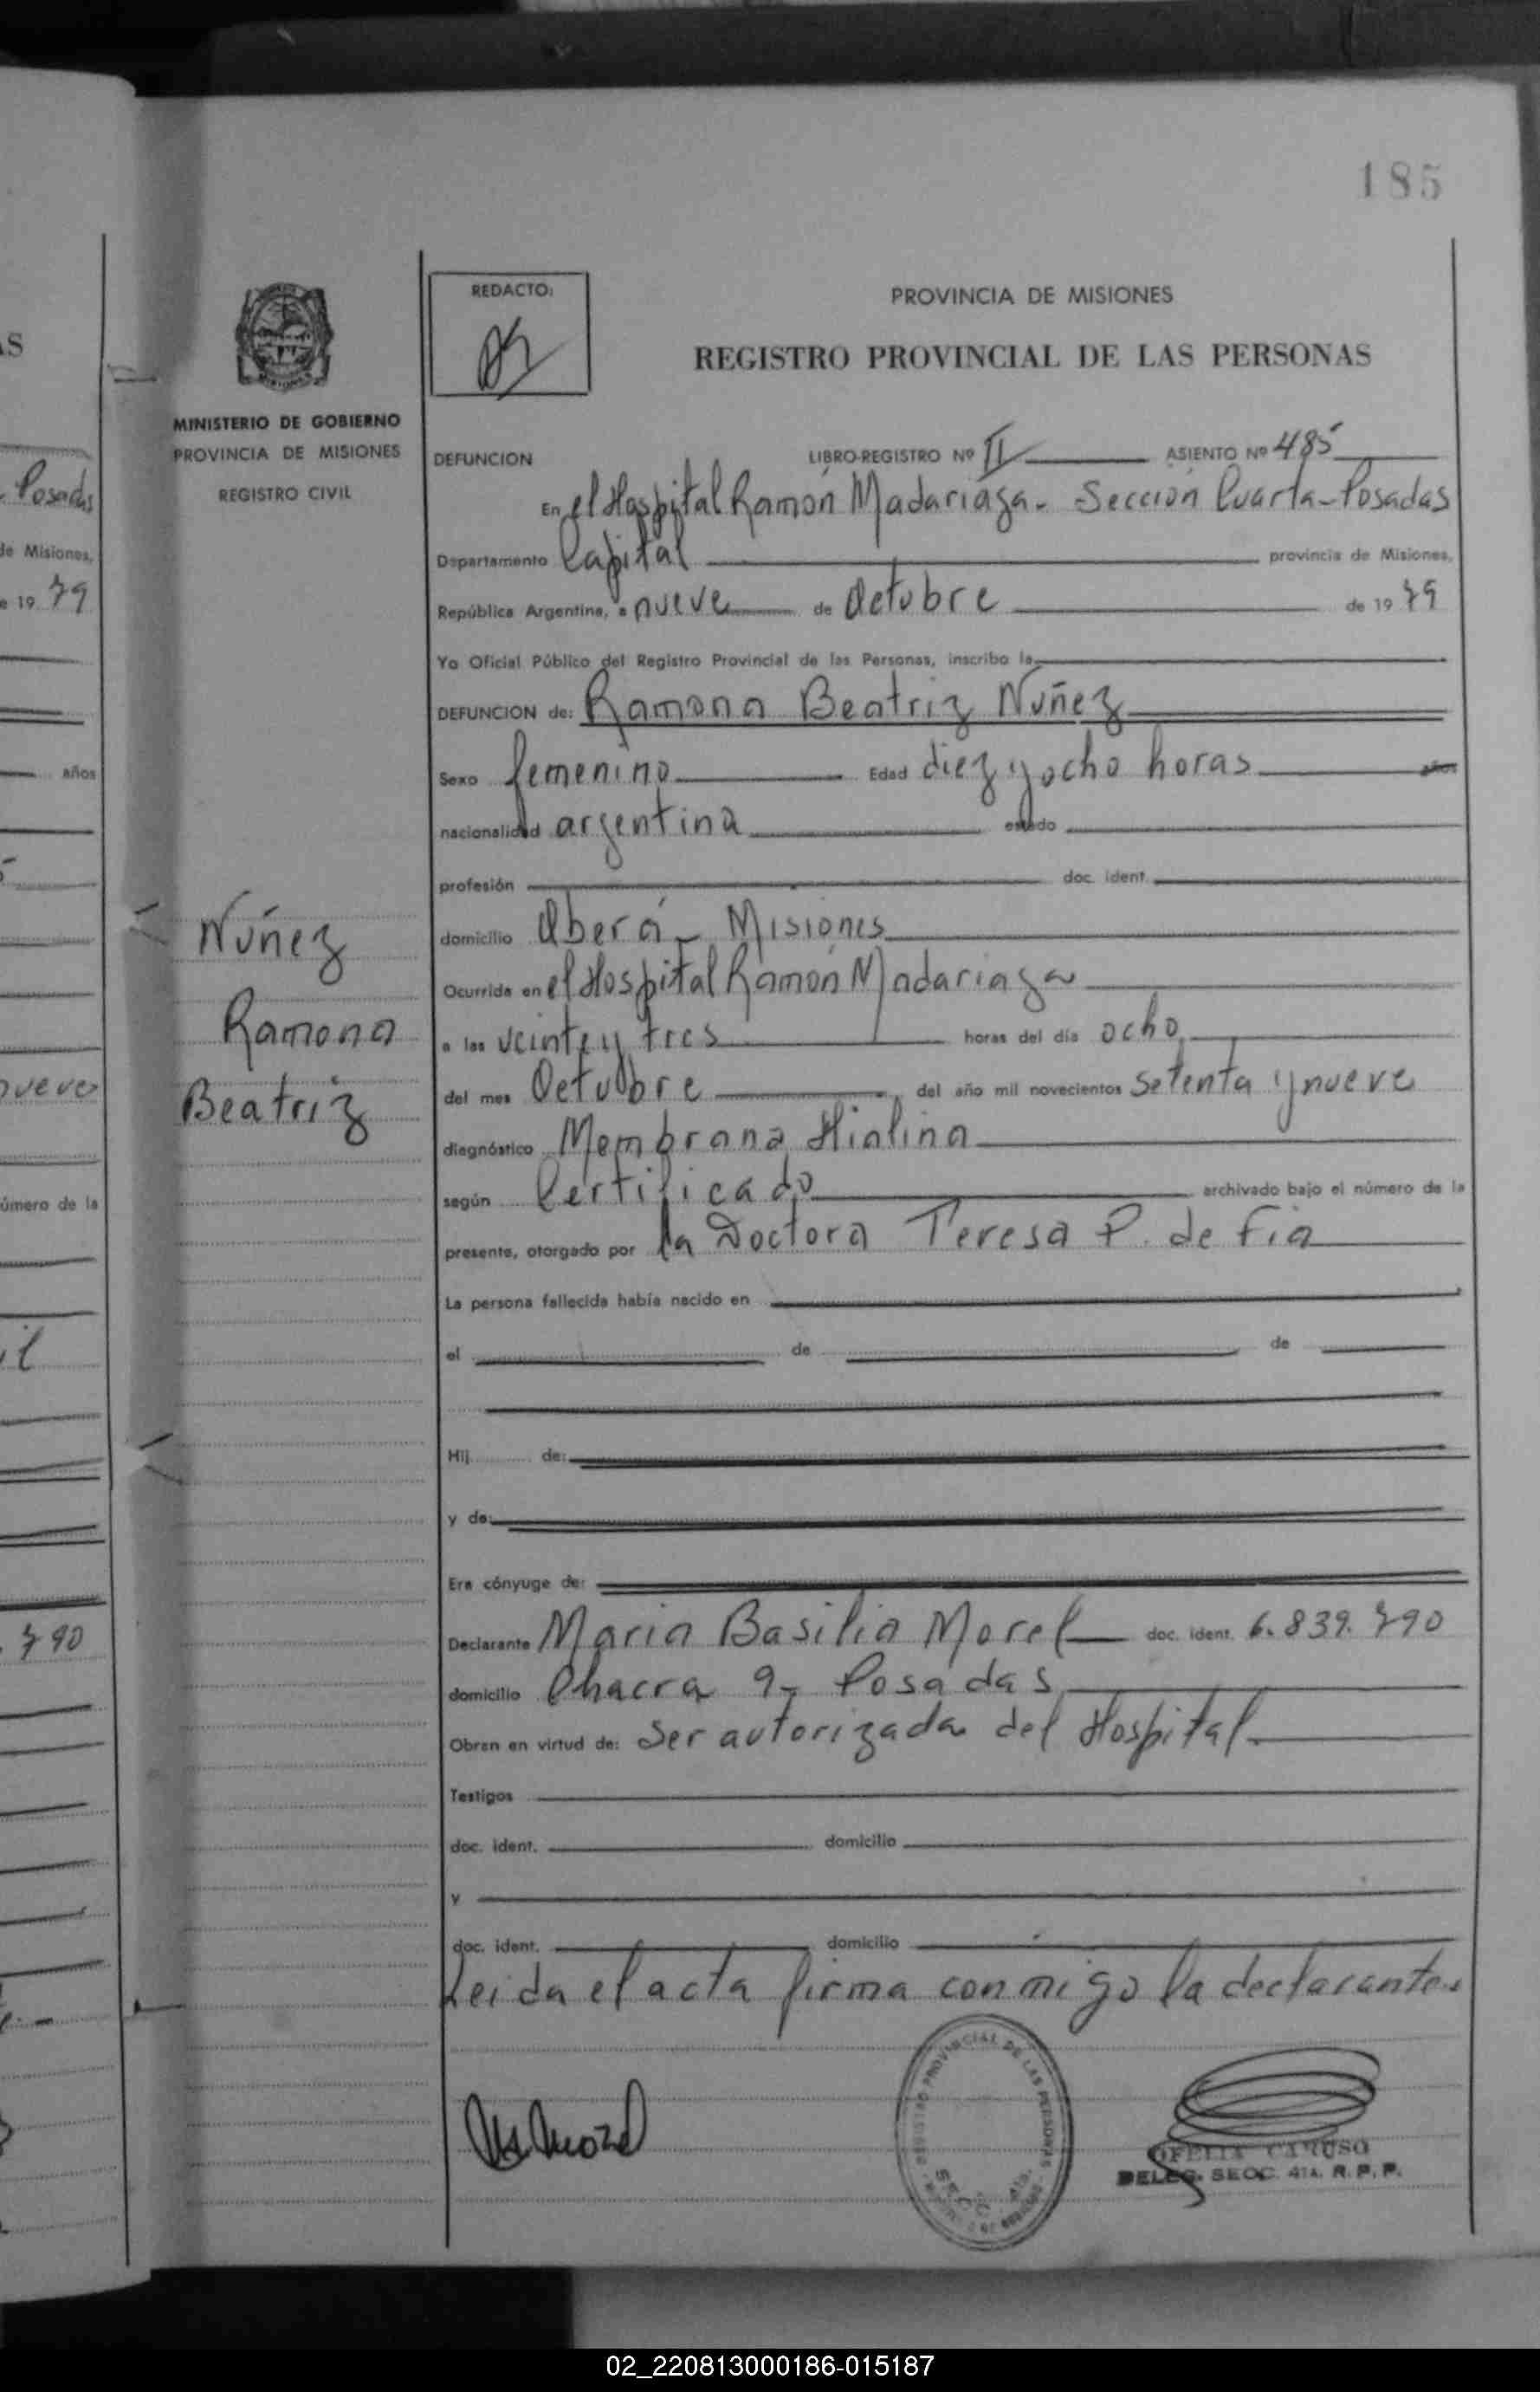 185
REDACTO:
PROVINCIA DE MISIONES
REGISTRO PROVINCIAL DE LAS PERSONAS
MINISTERIO DE GOBIERNO
PROVINCIA DE MISIONES
REGISTRO CIVIL
DEFUNCION LIBRO-REGISTRO Nº II ASIENTO Nº 485
En el Hospital Ramón Madariaga - Sección Cuarta - Posadas
Departamento Capital provincia de Misiones,
República Argentina, a nueve de Octubre de 1979
Yo Oficial Público del Registro Provincial de las Personas, inscribo la
DEFUNCION de: Ramona Beatriz Nuñez
Sexo femenino Edad diez y ocho horas años
nacionalidad argentina estado
profesión doc. ident.
domicilio Oberá - Misiones
Ocurrida en el Hospital Ramón Madariaga
a las veinte y tres horas del día ocho
del mes Octubre, del año mil novecientos setenta y nueve
diagnóstico Membrana Hialina
según Certificado archivado bajo el número de la
presente, otorgado por la Doctora Teresa P. de Fia
La persona fallecida había nacido en
el de de
Hij de:
y de:
Era cónyuge de:
Declarante Maria Basilia Morel doc. ident. 6.839.790
domicilio Chacra 9 - Posadas
Obran en virtud de: Ser autorizada del Hospital
Testigos
doc. ident. domicilio
y
doc. ident. domicilio
Leida el acta firma conmigo la declarante.
Nuñez
Ramona
Beatriz
REGISTRO PROVINCIAL DE LAS PERSONAS
OFELIA CARUSO
DELEG. SECC. 4ta. R. P. P.
AS
Posadas
de Misiones,
e 19 79
años
nueve
úmero de la
il
790
02_220813000186-015187